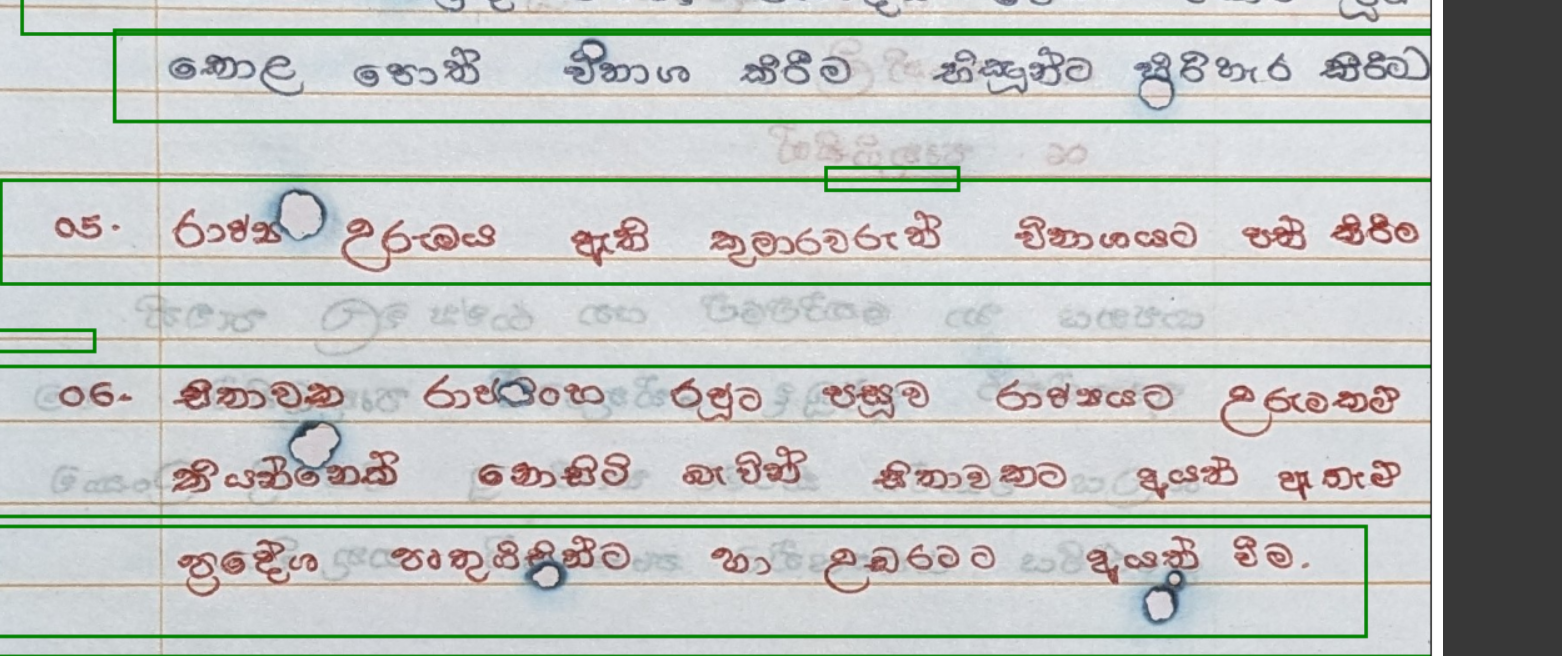 පොත් විනාශ කිරීම භික්ෂූන්ට හිරිහැර කිරීම
05. රාජ්‍ය උරුමය ඇති කුමාරවරුන් විනාශයට පත් කිරීම
06. සීතාවක රාජසිංහ රජුට පසුව රාජ්‍යයට උරුමකම්
කියන්නෙක් නොසිටි බැවින් සීතාවකට අයත් ඇතැම්
ප්‍රදේශ පෘතුගීසීන්ට හා උඩරටට අයත් වීම.